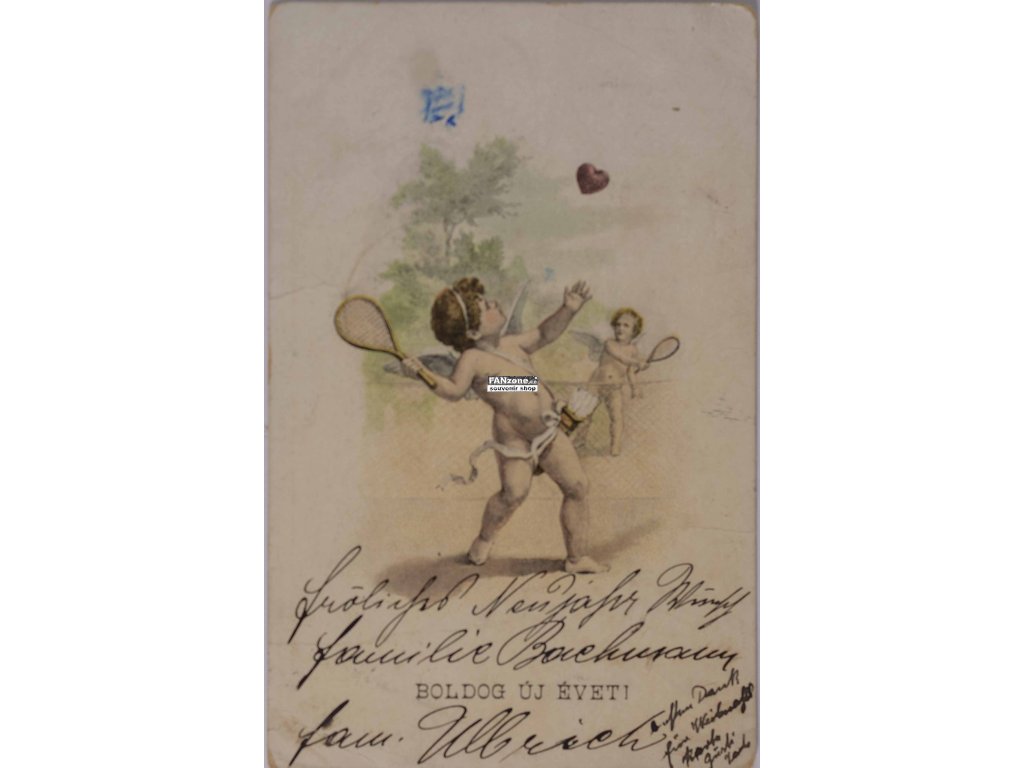 FANzone.cz
souvenir shop
frölichs Neujahr Wünsch
familie Bachmann
BOLDOG ÚJ ÉVET!
fam. Ullrich
Dank
für Weihnachts